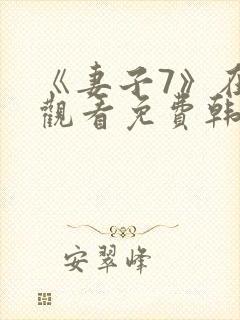 《妻子7》在
觀看免費韩
安翠峰